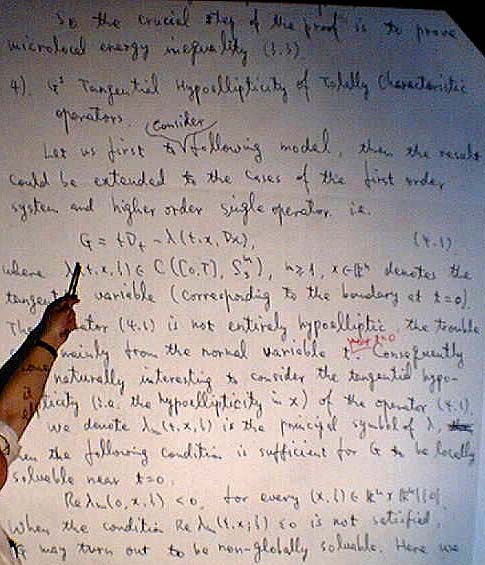 So the crucial step of the proof is to prove
microlocal energy inequality (3.3)
4). Gˢ Tangential Hypoellipticity of Totally Characteristic
operators.
Let us first to consider following model, then the result
could be extended to the cases of the first order
system and higher order single operator. i.e.
G = tDₜ - λ(t,x,Dx), (4.1)
where λ(t,x,ξ) ∈ C([0,T), S), n≥1, x∈ℝⁿ denotes the
variable (corresponding to the boundary at t=0).
(4.1) is not entirely hypoelliptic, the trouble
mainly from the normal variable t near t=0. Consequently
naturally interesting to consider the tangential hypo-
(i.e. the hypoellipticity in x) of the operator (4.1).
we denote λₘ(t,x,ξ) is the principal symbol of λ,
the following condition is sufficient for G to be locally
soluble near t=0.
Re λₘ(0,x,ξ) <0, for every (x,ξ) ∈ ℝⁿ × ℝⁿ\{0}.
When the condition Re λₘ(t,x,ξ) ≤0 is not satisfied,
G may turn out to be non-globally soluble. Here we